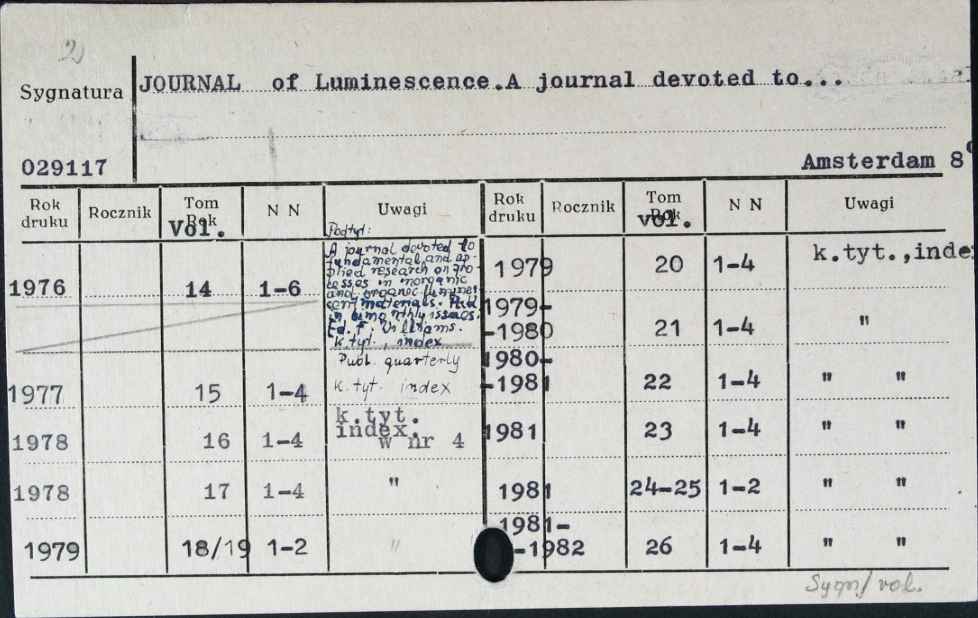 2)
Sygnatura JOURNAL of Luminescence.A journal devoted to...
029117 Amsterdam 8°
Rok druku Rocznik Tom Rok vol. N N Uwagi Rok druku Rocznik Tom Rok vol. N N Uwagi
1976 14 1-6
Podtyt:
A journal devoted to
fundamental and ap-
plied research on pro-
cesses in inorganic
and organic lumines-
cent materials. Publ.
in bimonthly issues.
Ed. F. Williams.
k.tyt., index
1977 15 1-4
Publ. quarterly
k.tyt. index
1978 16 1-4
k.tyt.
index.
w nr 4
1978 17 1-4 "
1979 18/19 1-2 "
1979 20 1-4 k.tyt.,index
1979-
-1980 21 1-4 "
1980-
-1981 22 1-4 " "
1981 23 1-4 " "
1981 24-25 1-2 " "
1981-
-1982 26 1-4 " "
Sygn/ vol.